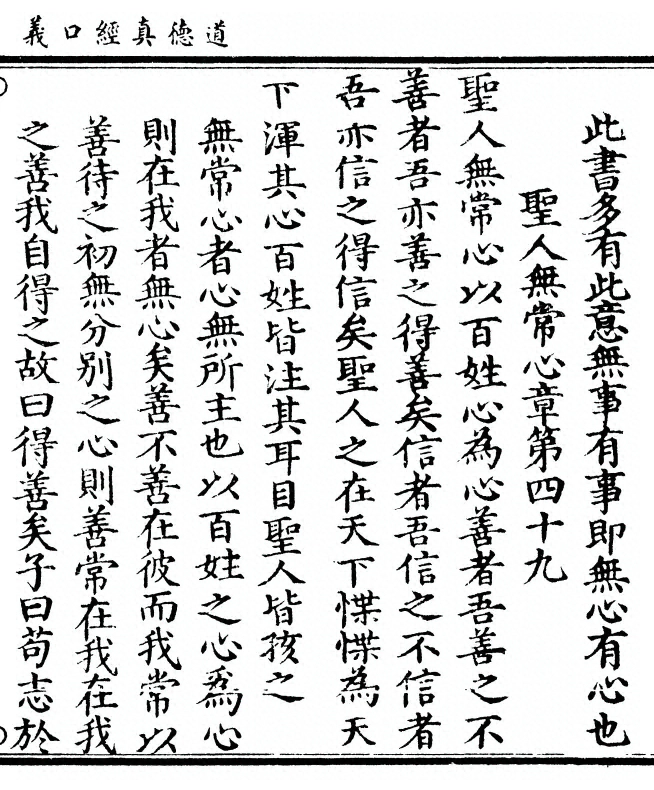 道德真經口義
此書多有此意無事有事即無心有心也
聖人無常心章第四十九
聖人無常心以百姓心為心善者吾善之不
善者吾亦善之得善矣信者吾信之不信者
吾亦信之得信矣聖人之在天下惵惵為天
下渾其心百姓皆注其耳目聖人皆孩之
無常心者心無所主也以百姓之心爲心
則在我者無心矣善不善在彼而我常以
善待之初無分別之心則善常在我在我
之善我自得之故曰得善矣子曰苟志於